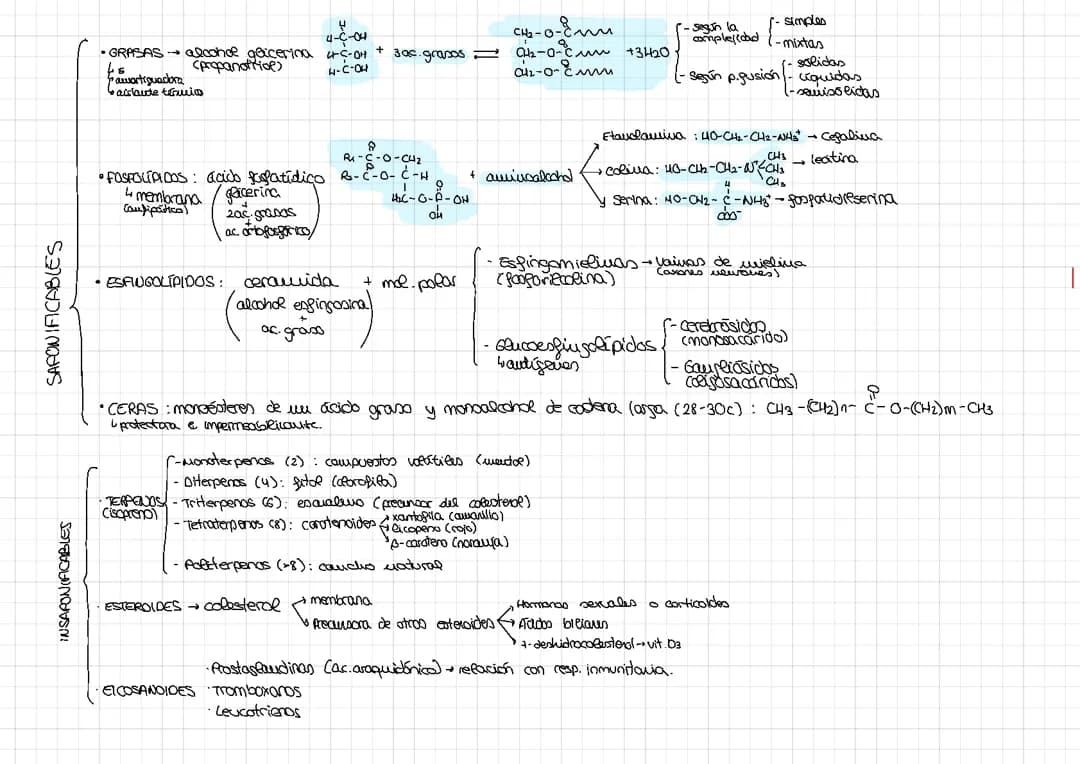 SAPONIFICABLES
• GRASAS → alcohol glicerina (propanotriol)
↳ amortiguadora
↳ aislante térmico
H
H-C-OH
H-C-OH
H-C-OH
+ 3 ac. grasos ⇌
O
CH2-O-C
O
CH2-O-C
O
CH2-O-C
+3H2O
- según la complejidad
- simples
- mixtas
- según p.fusión
- sólidas
- líquidas
- semisólidas
• FOSFOLÍPIDOS : ácido fosfatídico
↳ membrana (anfipático)
(glicerina
+
2ac. grasos
+
ac. ortofosfórico)
O
R1-C-O-CH2
R2-C-O-C-H
O
H2C-O-P-OH
OH
+ aminoalcohol
Etanolamina : HO-CH2-CH2-NH3+ → Cefalina
colina : HO-CH2-CH2-N+ CH3 CH3 CH3 → lecitina
Serina : HO-CH2-C-NH3+ → fosfatidilserina
H
COO-
• ESFINGOLÍPIDOS : ceramida + mol. polar
(alcohol esfingosina
+
ac. graso)
- Esfingomielinas → vainas de mielina
(fosforilcolina) (axones neuronas)
- Glucoesfingolípidos
↳ antígenos
- cerebrósidos
(monosacárido)
- Gangliósidos
(oligosacáridos)
• CERAS : monoésteres de un ácido graso y monoalcohol de cadena larga (28-30C) : CH3-(CH2)n-C-O-(CH2)m-CH3
O
↳ protectora e impermeabilizante.
INSAPONIFICABLES
· TERPENOS
(isopreno)
- Monoterpenos (2) : compuestos volátiles (mentol)
- Diterpenos (4): fitol (clorofila)
- Triterpenos (6): escualeno (precursor del colesterol)
- Tetraterpenos (8): carotenoides
xantofila (amarillo)
licopeno (rojo)
β-caroteno (naranja)
- Politerpenos (>8): caucho natural
· ESTEROIDES → colesterol
→ membrana
Precursora de otros esteroides
Hormonas sexuales o corticoides
Ácidos biliares
7-deshidrocolesterol → vit. D3
· EICOSANOIDES
· Prostaglandinas (ac. araquidónico) → relación con resp. inmunitaria.
· Tromboxanos
· Leucotrienos